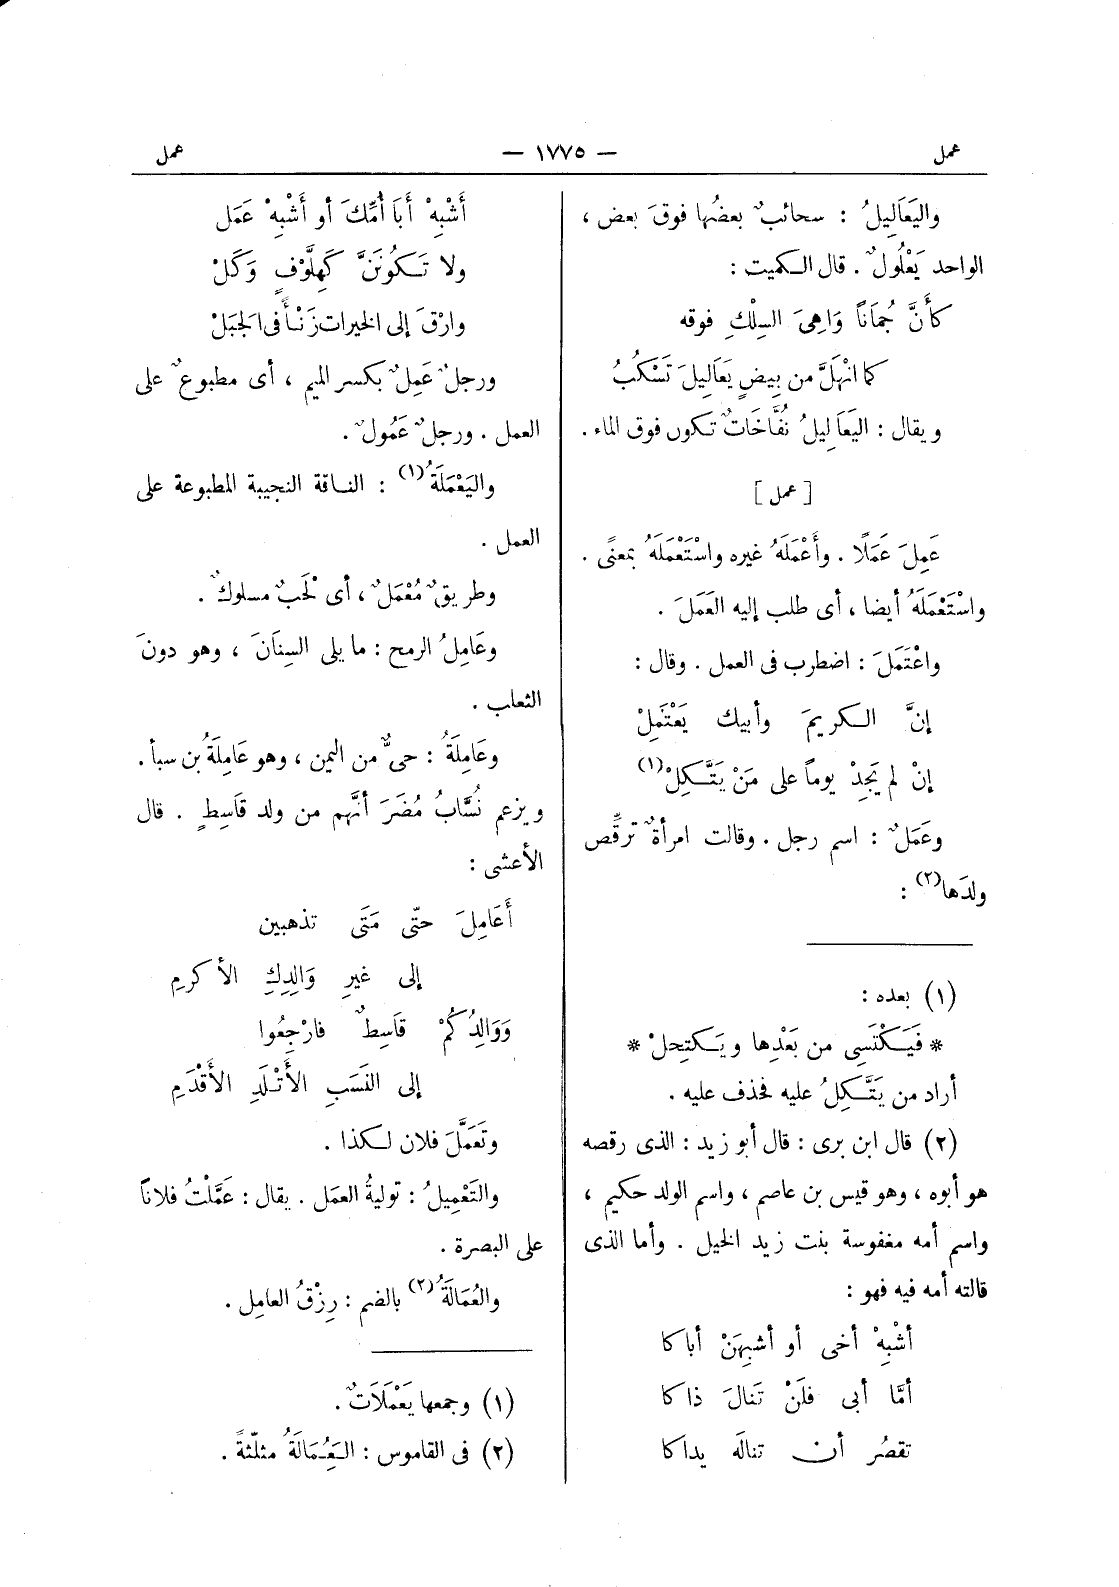 عمل — ١٧٧٥ — عمل
واليَعَالِيلُ : سحائبٌ بعضُها فوقَ بعض ،
الواحد يَعْلُولٌ . قال الكميت :
كأَنَّ جُمَاناً وَاهِىَ السِلْكِ فوقه
كما انْهَلَّ من بِيضٍ يَعَالِيلَ تَسْكُبُ
ويقال : اليَعَالِيلُ نُفَّاخَاتٌ تكون فوق الماء .
[ عمل ]
عَمِلَ عَمَلًا . وأَعْمَلَهُ غيره واسْتَعْمَلَهُ بمعنًى .
واسْتَعْمَلَهُ أيضا ، أى طلب إليه العَمَلَ .
واعْتَمَلَ : اضطرب فى العمل . وقال :
إنَّ الكريمَ وأبيك يَعْتَمِلْ
إنْ لم يَجِدْ يوماً على مَنْ يَتَّكِلْ(١)
وعَمَلٌ : اسم رجل . وقالت امرأةٌ ترقِّص
ولدَها(٢) :
(١) بعده :
* فَيَكْتَسِى من بَعْدِها ويَكتِحلْ *
أراد من يَتَّكِلُ عليه فحذف عليه .
(٢) قال ابن برى : قال أبو زيد : الذى رقصه
هو أبوه ، وهو قيس بن عاصم ، واسم الولد حكيم ،
واسم أمه مغفوسة بنت زيد الخيل . وأما الذى
قالته أمه فيه فهو :
أشْبِهْ أخى أو أشبِهَنْ أباكا
أمَّا أبى فلَنْ تَنالَ ذاكا
تقصُر أن تنالَه يداكا
أَشْبِهْ أَبَا أُمِّكَ أو أَشْبِهْ عَمَل
ولا تَكُونَنَّ كَهِلَّوْفٍ وَكَلْ
وارْقَ إلى الخيرات زَنْأً فى الجَبَلْ
ورجلٌ عَمِلٌ بكسر الميم ، أى مطبوعٌ على
العمل . ورجلٌ عَمُولٌ .
واليَعْمَلَةُ(١) : الناقة النجيبة المطبوعة على
العمل .
وطريقٌ مُعْمَلٌ ، أى لَحْبٌ مسلوكٌ .
وعَامِلُ الرمح : ما يلى السِنَانَ ، وهو دونَ
الثعلب .
وعَامِلَةُ : حىٌّ من اليمن ، وهو عَامِلَةُ بن سبأ .
ويزعم نُسَّابُ مُضَرَ أنَّهم من ولد قَاسِطٍ . قال
الأعشى :
أَعَامِلَ حتّى مَتَى تذهبين
إلى غيرِ وَالِدِكِ الأكرمِ
وَوَالِدُكُمْ قَاسِطٌ فارْجِعُوا
إلى النَسَبِ الأَتْلَدِ الأَقْدَمِ
وتَعَمَّلَ فلان لكذا .
والتَعْمِيلُ : توليةُ العمَل . يقال : عَمَّلْتُ فلاناً
على البصرة .
والعُمَالَةُ(٢) بالضم : رِزْقُ العامِل .
(١) وجمعها يَعْمَلَاتٌ .
(٢) فى القاموس : العَُِمَالَةُ مثلّثةً .